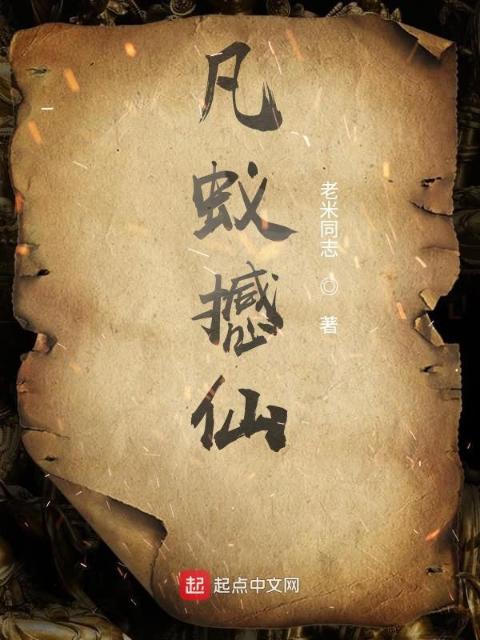 凡蚁撼仙
老米同志 ◎ 著
起 起点中文网